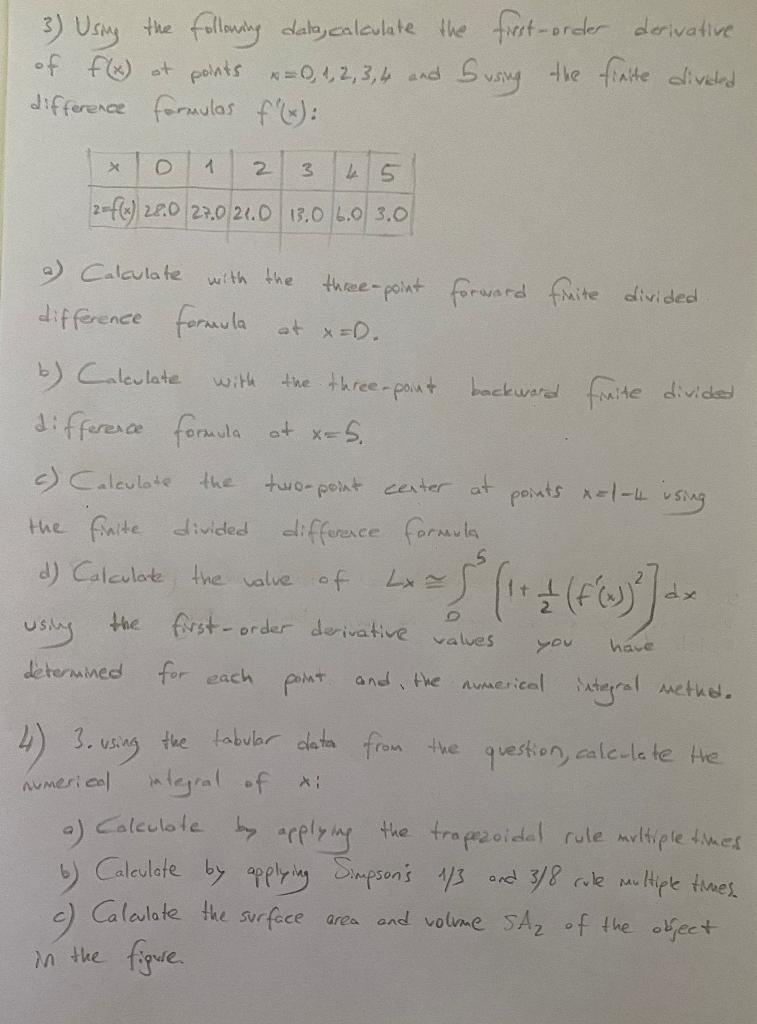 3) Using the following data, calculate the first-order derivative
of f(x) at points x=0,1,2,3,4 and 5 using the finite divided
difference formulas f'(x):
x 0 1 2 3 4 5
z=f(x) 28.0 27.0 21.0 13.0 6.0 3.0
a) Calculate with the three-point forward finite divided
difference formula at x=0.
b) Calculate with the three-point backward finite divided
difference formula at x=5.
c) Calculate the two-point center at points x=1-4 using
the finite divided difference formula
d) Calculate the value of Lx ≅ ∫₀⁵ [1+ 1/2 (f'(x))²] dx
using the first-order derivative values you have
determined for each point and, the numerical integral method.
4) 3. using the tabular data from the question, calculate the
numerical integral of x:
a) Calculate by applying the trapezoidal rule multiple times
b) Calculate by applying Simpson's 1/3 and 3/8 rule multiple times
c) Calculate the surface area and volume SAz of the object
in the figure.